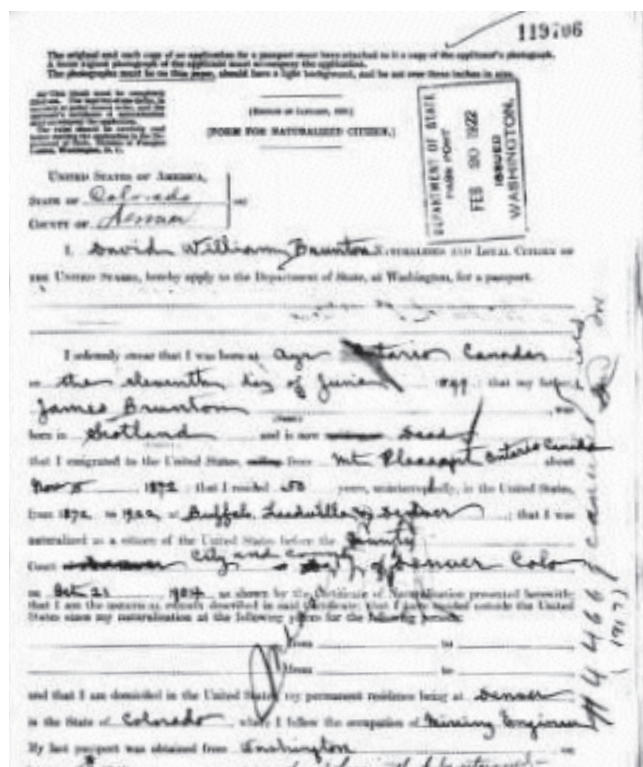 119706
The original and each copy of an application for a passport must have attached to it a copy of the applicant's photograph.
A loose signed photograph of the applicant must accompany the application.
The photographs must be on thin paper, should have a light background, and be not over three inches in size.
[FORM FOR NATURALIZED CITIZEN.]
DEPARTMENT OF STATE
PASSPORT
FEB 20 1922
ISSUED
WASHINGTON.
UNITED STATES OF AMERICA,
STATE OF Colorado
COUNTY OF Denver
I, David William Brunton, a NATURALIZED AND LOYAL CITIZEN OF
THE UNITED STATES, hereby apply to the Department of State, at Washington, for a passport.
I solemnly swear that I was born at Ayr Ontario Canada
on the eleventh day of June ; that my father,
James Brunton was
born in Scotland and is now dead
that I emigrated to the United States, from Mt Pleasant Ontario Canada about
Nov 1872 ; that I resided 50 years, uninterruptedly, in the United States,
from 1872 to 1922, at Buffalo, Leadville & Denver ; that I was
naturalized as a citizen of the United States before the County
Court City and County of Denver Colo
on Oct 21 as shown by the Certificate of Naturalization presented herewith;
that I am the identical person described in said Certificate; that I have resided outside the United
States since my naturalization at the following places for the following periods:
from to
from to
and that I am domiciled in the United States, my permanent residence being at Denver
in the State of Colorado, where I follow the occupation of Mining Engineer
My last passport was obtained from Washington on